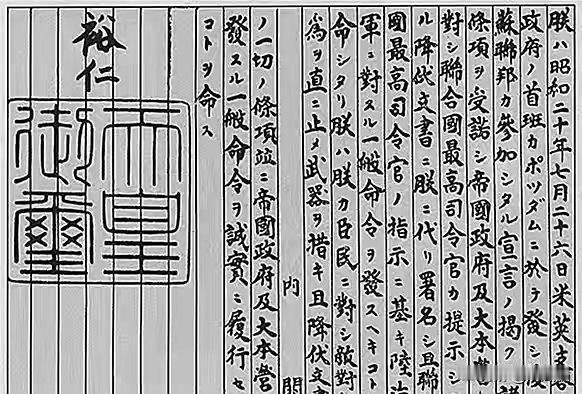 朕ハ昭和二十年七月二十六日米英支
政府ノ首班カポツダムニ於テ發シ後
蘇聯邦カ參加シタル宣言ノ掲ク
條項ヲ受諾シ帝國政府及大本營
對シ聯合國最高司令官カ提示シ
ル降伏文書ニ朕ニ代リ署名シ且聯
國最高司令官ノ指示ニ基キ陸海
軍ニ對スル一般命令ヲ發スヘキコト
命シタリ朕ハ朕カ臣民ニ對シ敵對
爲ヲ直ニ止メ武器ヲ措キ且降伏文
内閣
ノ一切ノ條項竝ニ帝國政府及大本營
發スル一般命令ヲ誠實ニ履行セ
コトヲ命ス
裕仁
天皇
御璽